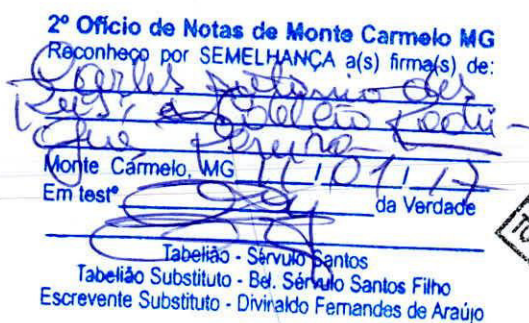 2º Ofício de Notas de Monte Carmelo MG
Reconheço por SEMELHANÇA a(s) firma(s) de:
Carlos Antonio dos
Monte Carmelo, MG 11/01/17
Em testº da Verdade
Tabelião - Sérvulo Santos
Tabelião Substituto - Bel. Sérvulo Santos Filho
Escrevente Substituto - Divinaldo Fernandes de Araújo